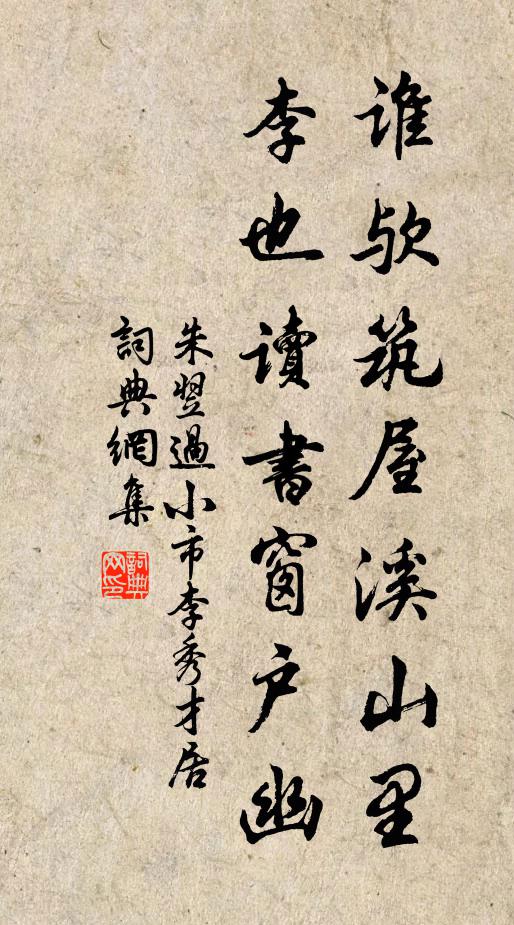 誰欤筑屋溪山里
李也讀書窗户幽
朱翌過小市李秀才居
詞典網集
詞典网印